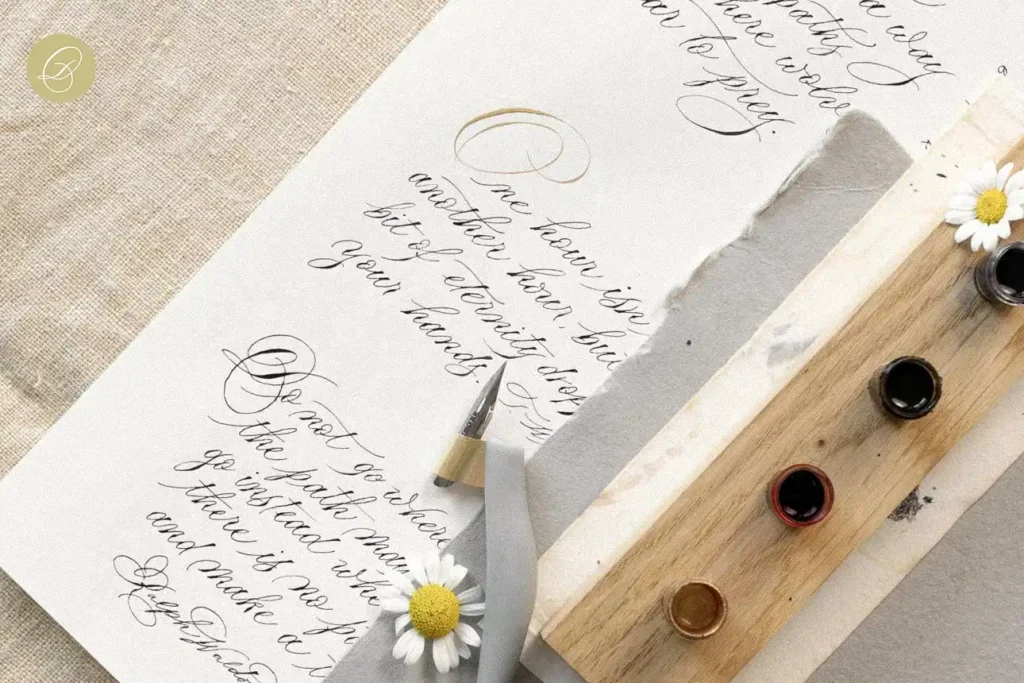 a way
paths
here wolve
ar to prey.
One hour isn
another hour, but
bit of eternity drop
your hands.
Do not go where
the path may
go instead whe
there is no p
and make a t
Ralph Waldo